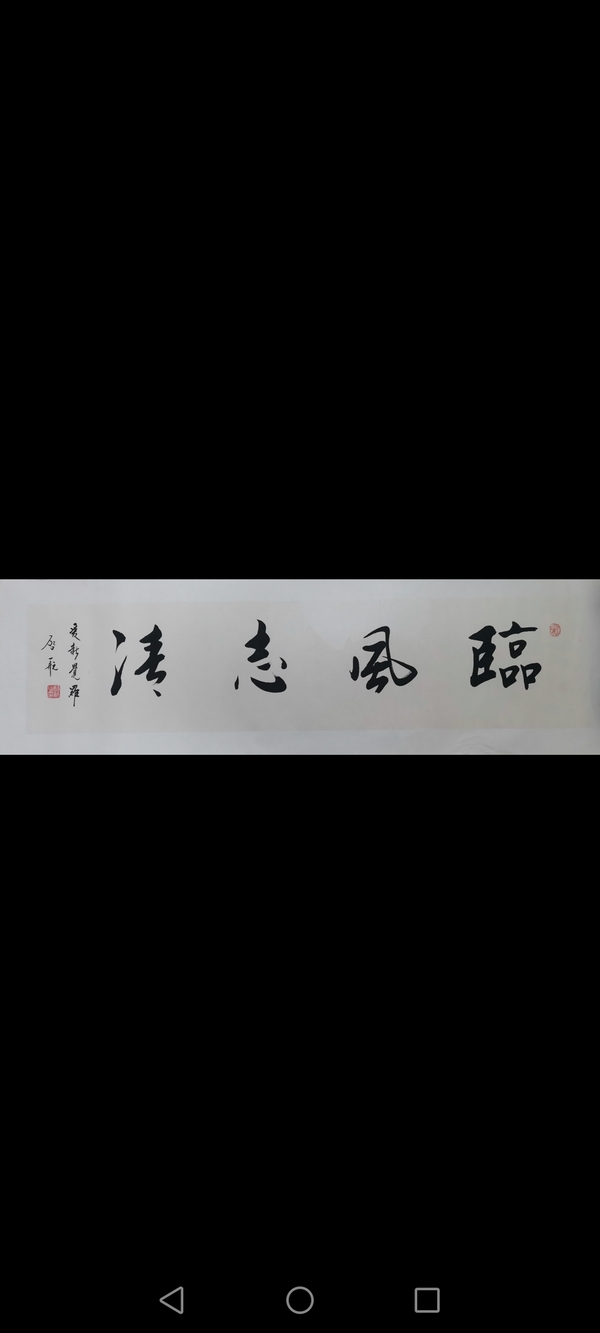 臨風志清
愛新覺羅
啓驤